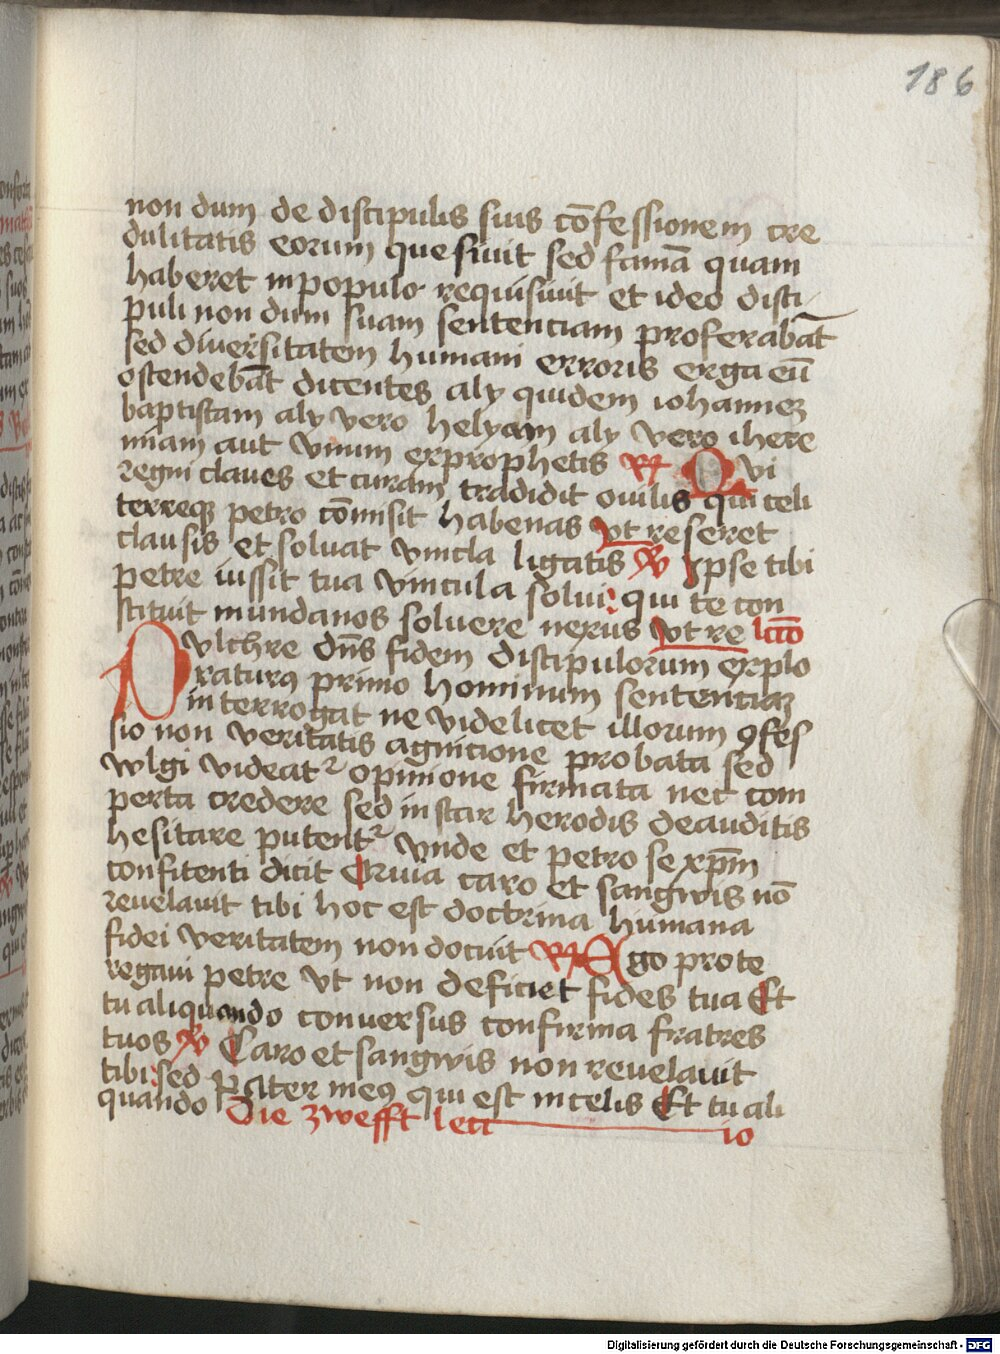 186
non dum de discipulis suis cōfessionem cre
dulitatis eorum quesiuit sed famā quam
haberet in populo requisiuit et ideo disci
puli non dum suam sentenciam proferabāt
sed diuersitatem humani erroris erga eū
ostendebāt dicentes aly quidem iohannez
baptistam aly vero helyam aly vero ihere
miam aut vnum ex prophetis R Qvi
regni claues et curam tradidit ouilis qui celi
terreqz petro cōmisit habenas vt reseret
clausis et soluat vincla ligatis V Ipse tibi
petre iussit tua vincula solui: qui te con
stituit mundanos soluere nexus vt re lcīo
Pvlchre dn̄s fidem discipulorum explo
raturꝯ primo hominum sentenciaz
interrogat ne videlicet illorum ꝯfes
sio non veritatis agnicione probata sed
wlgi videat᷑ opinione firmata nec com
perta credere sed instar herodis de auditis
hesitare putent᷑ Vnde et petro se xp̄m
confitenti dicit Quia caro et sangwis nō
reuelauit tibi hoc est doctrina humana
fidei veritatem non docuit R Ego pro te
rogaui petre vt non deficiet fides tua Et
tu aliquando conuersus confirma fratres
tuos V Caro et sangwis non reuelauit
tibi: sed Pater meꝯ qui est in celis Et tu ali
quando Die zwefft lect io
Digitalisierung gefördert durch die Deutsche Forschungsgemeinschaft - DFG